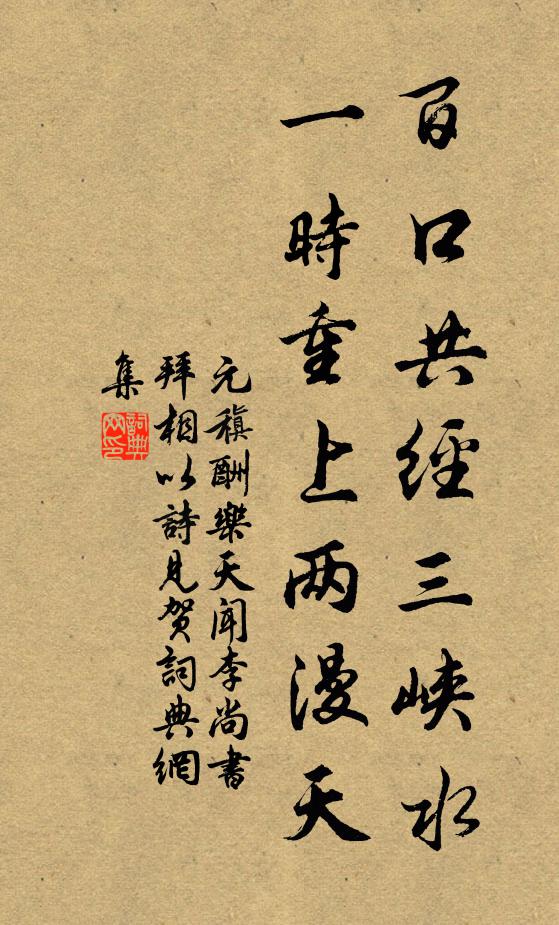 百口共經三峽水
一時重上两漫天
元稹酬樂天聞李尚書
拜相以詩見賀詞典網
集
詞典
网印